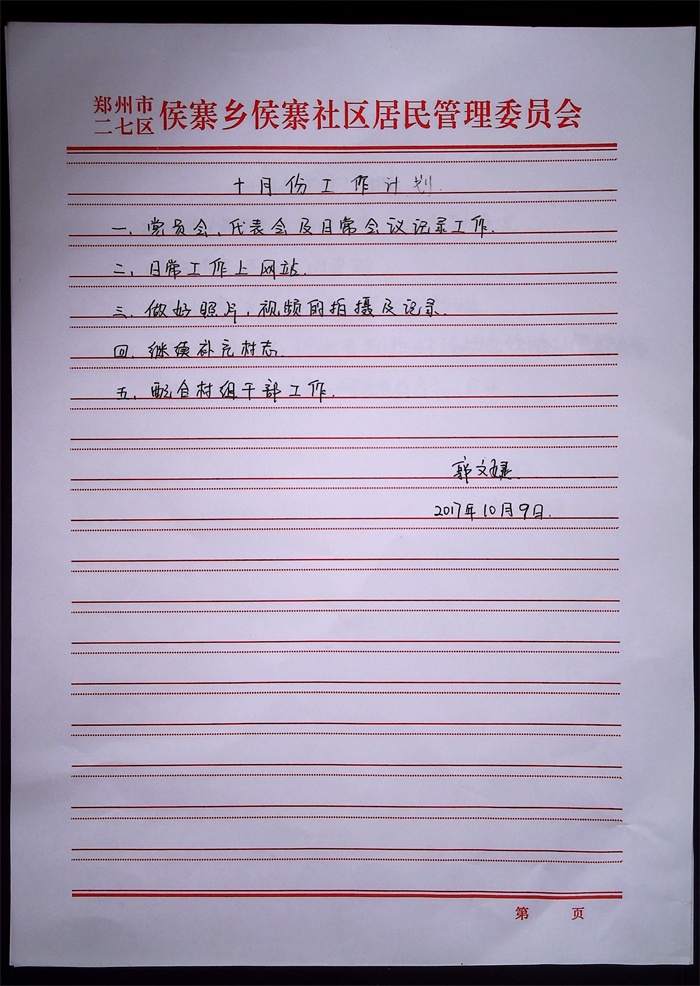 郑州市
二七区 侯寨乡侯寨社区居民管理委员会
十月份工作计划.
一、党员会、代表会及日常会议记录工作.
二、日常工作上网站.
三、做好照片，视频的拍摄及记录.
四、继续补充村志.
五、配合村组干部工作.
郭文
2017年10月9日.
第 页